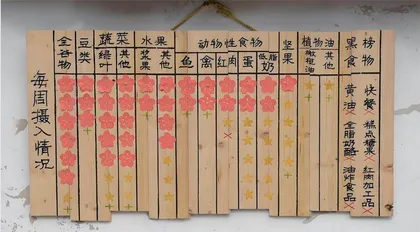 全谷物 豆类 蔬菜 水果 动物性食物 坚果 植物油 黑榜食物
绿叶 其他 浆果 其他 鱼 禽 红肉 蛋 低脂奶 橄榄油 其他
每周摄入情况
黄油 快餐
全脂奶酪 糕点糖果
油炸食品 红肉加工品